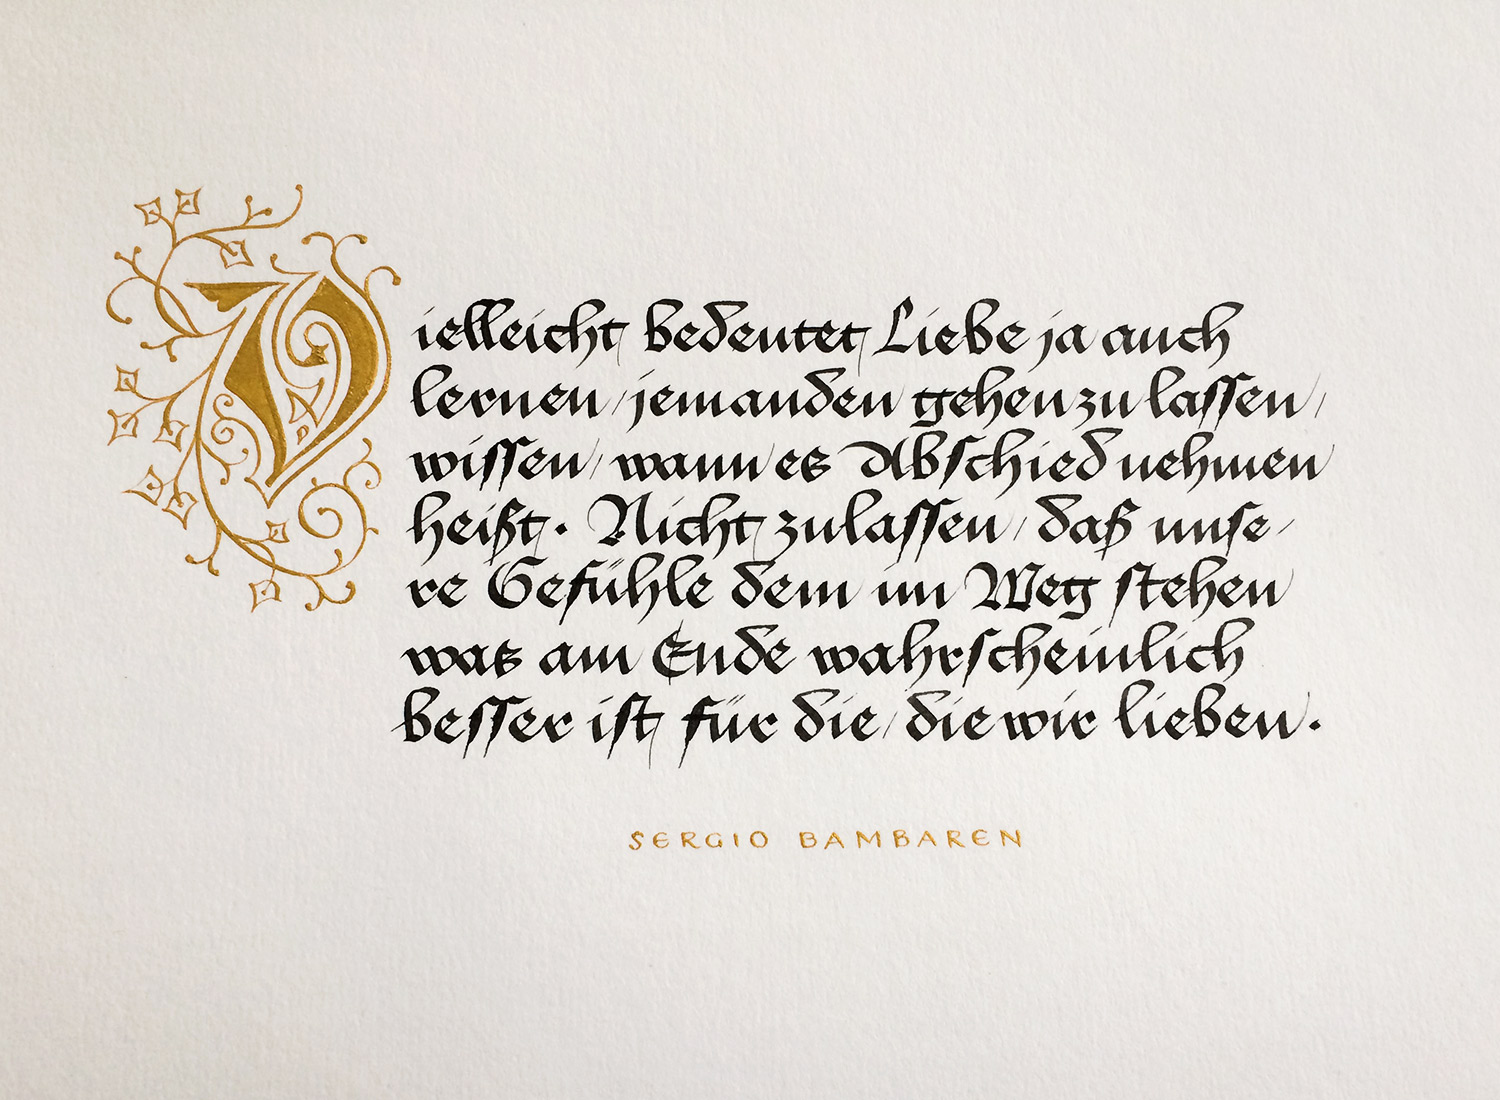 Vielleicht bedeutet Liebe ja auch
lernen, jemanden gehen zu lassen,
wissen, wann es Abschied nehmen
heißt. Nicht zulassen, daß unse-
re Gefühle dem im Weg stehen
was am Ende wahrscheinlich
besser ist für die, die wir lieben.
SERGIO BAMBAREN